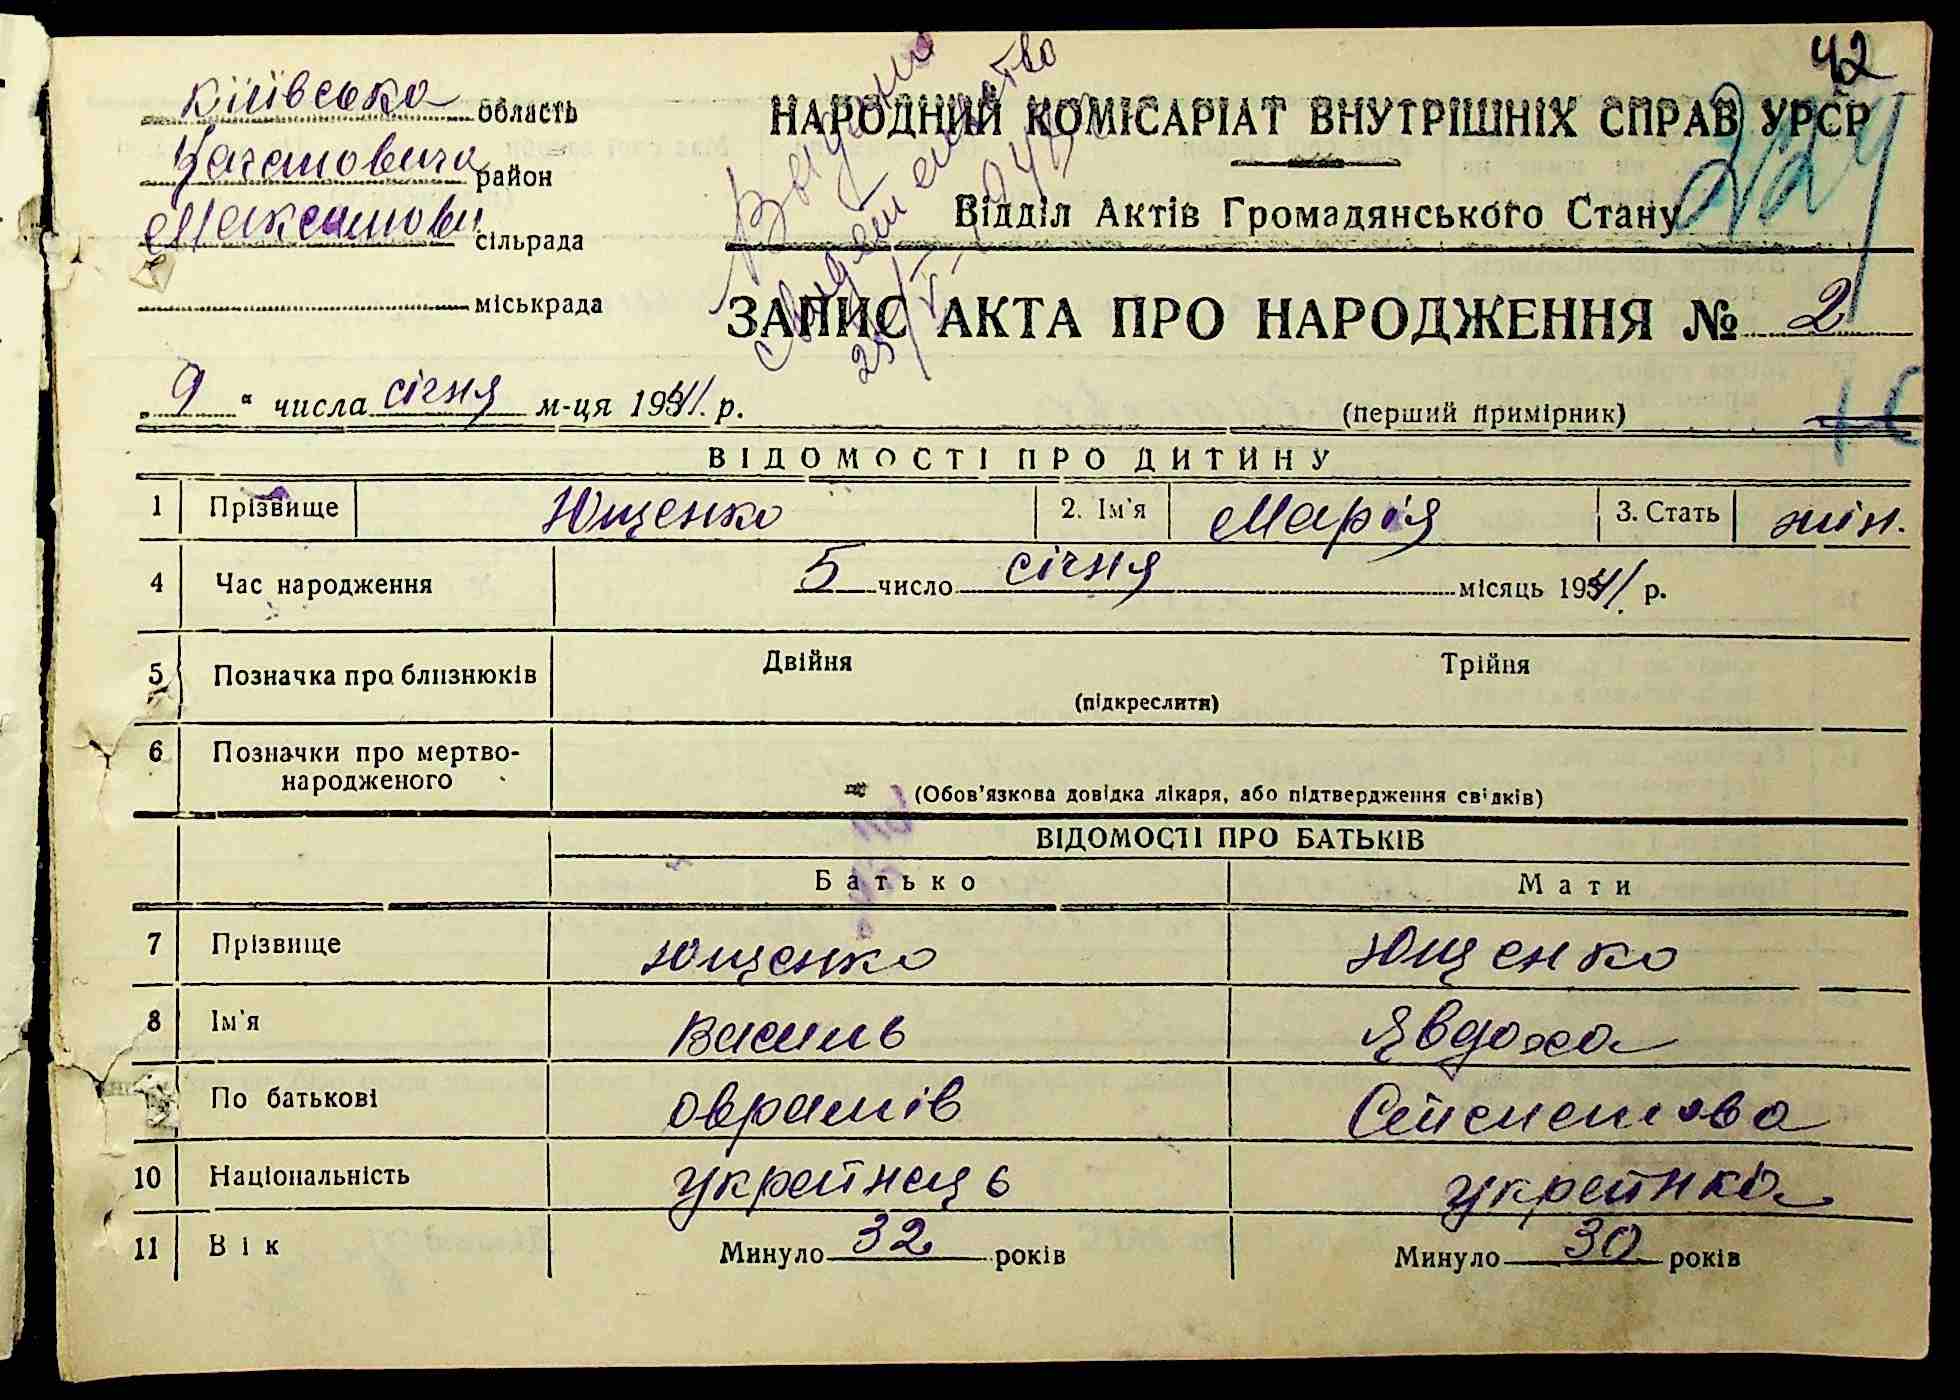 42
Київсько область
Кагановича район
Максимови сільрада
міськрада
НАРОДНИЙ КОМІСАРІАТ ВНУТРІШНІХ СПРАВ УРСР
Відділ Актів Громадянського Стану
224
ЗАПИС АКТА ПРО НАРОДЖЕННЯ № 2
"9" числа січня м-ця 1941. р.
(перший примірник)
ВІДОМОСТІ ПРО ДИТИНУ
1 Прізвище Ющенко 2. Ім'я Марія 3. Стать жін.
4 Час народження 5 число січня місяць 1941. р.
5 Позначка про близнюків Двійня Трійня
(підкреслити)
6 Позначки про мертво-
народженого
(Обов'язкова довідка лікаря, або підтвердження свідків)
ВІДОМОСТІ ПРО БАТЬКІВ
Батько Мати
7 Прізвище Ющенко Ющенко
8 Ім'я Василь Явдоха
По батькові Оврамів
10 Національність українець українка
11 Вік Минуло 32 років Минуло 30 років